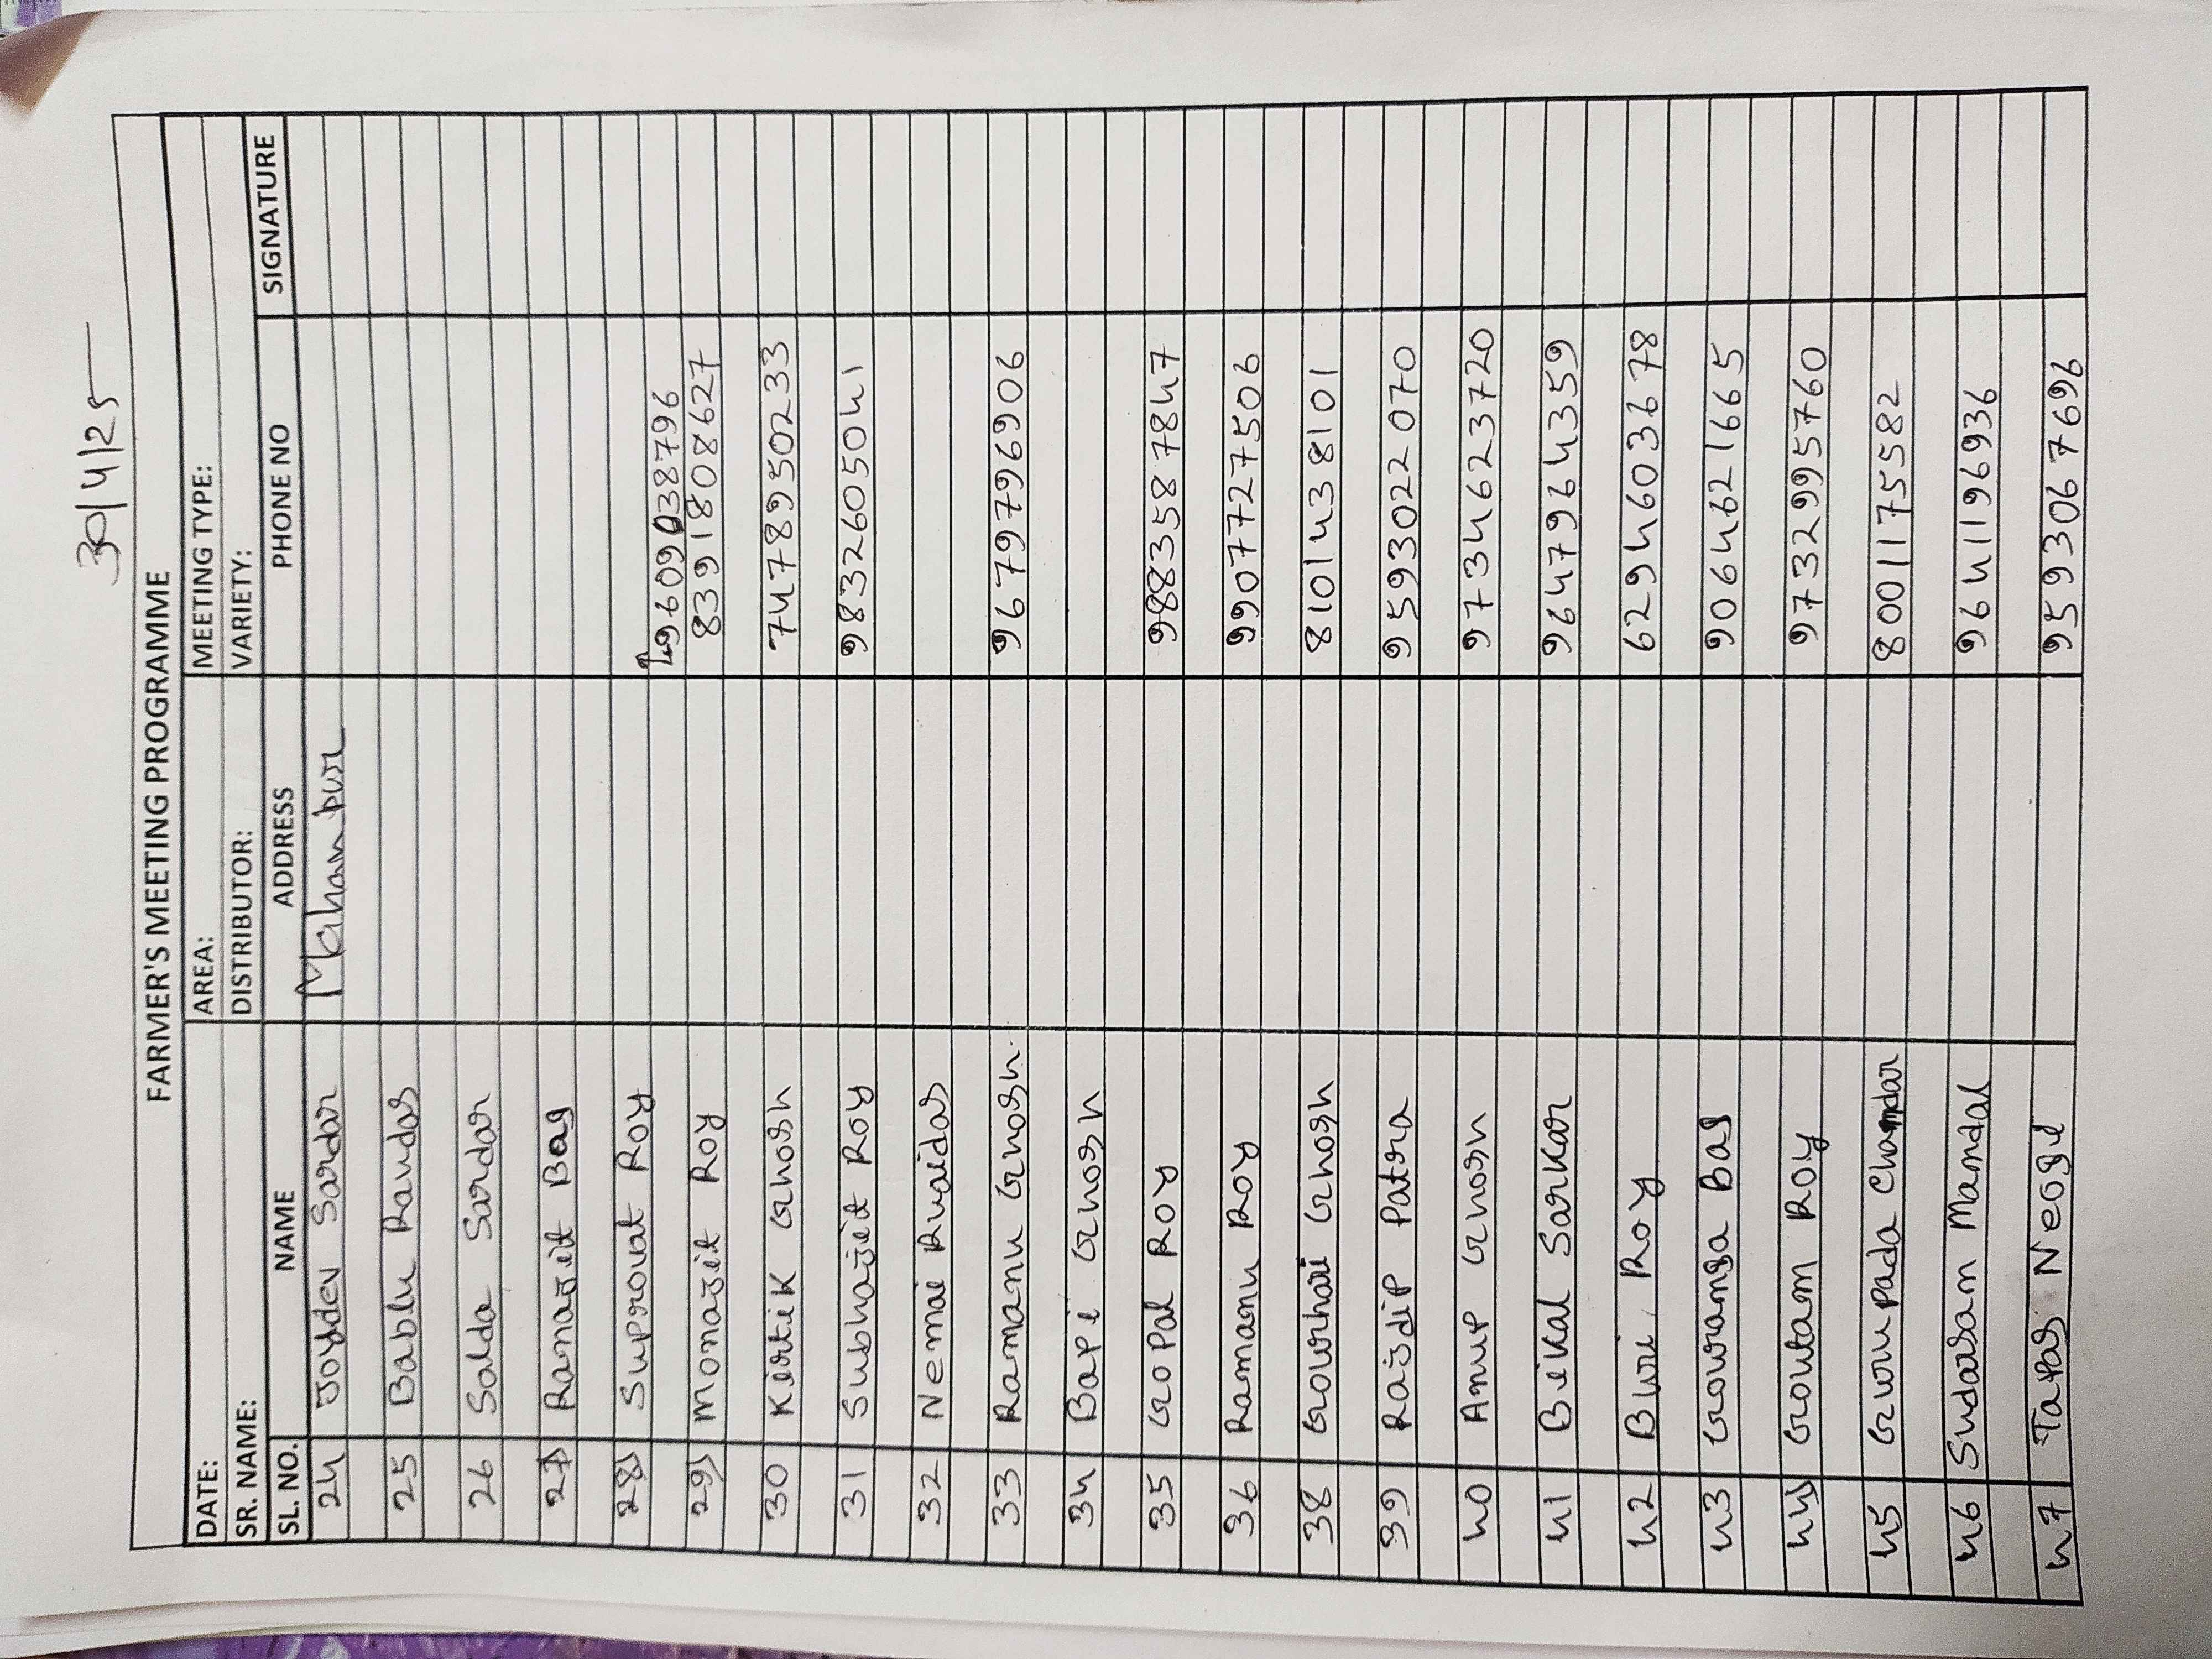 30/4/25
FARMER'S MEETING PROGRAMME
DATE: AREA: MEETING TYPE:
SR. NAME: DISTRIBUTOR: VARIETY:
SL. NO. NAME ADDRESS PHONE NO SIGNATURE
24 Joydev Sardar Mohanpur
25 Bablu Ruidas
26 Salda Sardar
27) Ramajit Bag
28) Suprovat Roy 9609038796
29) Monajit Roy 8391808627
30 Kirtik Ghosh 7478950233
31 Subhajit Roy 9832605041
32 Nemai Ruaidas
33 Ramanu Ghosh 9679796906
34 Bapi Ghosh
35 GoPal Roy 9883587847
36 Ramanu Roy 9907727506
38 Gourhari Ghosh 8101438101
39 Rajdip Patra 9593022070
40 Anup Ghosh 9734623720
41 Bikal Sarkar 9647964359
42 Roy 6294603678
43 Gouranga Bag 9064621665
44) Goutam Roy 9732995760
45 Guru Pada Chandar 8001175582
46 Sudasan Mandal 9641196936
47 Tapas Neogi 9593067696